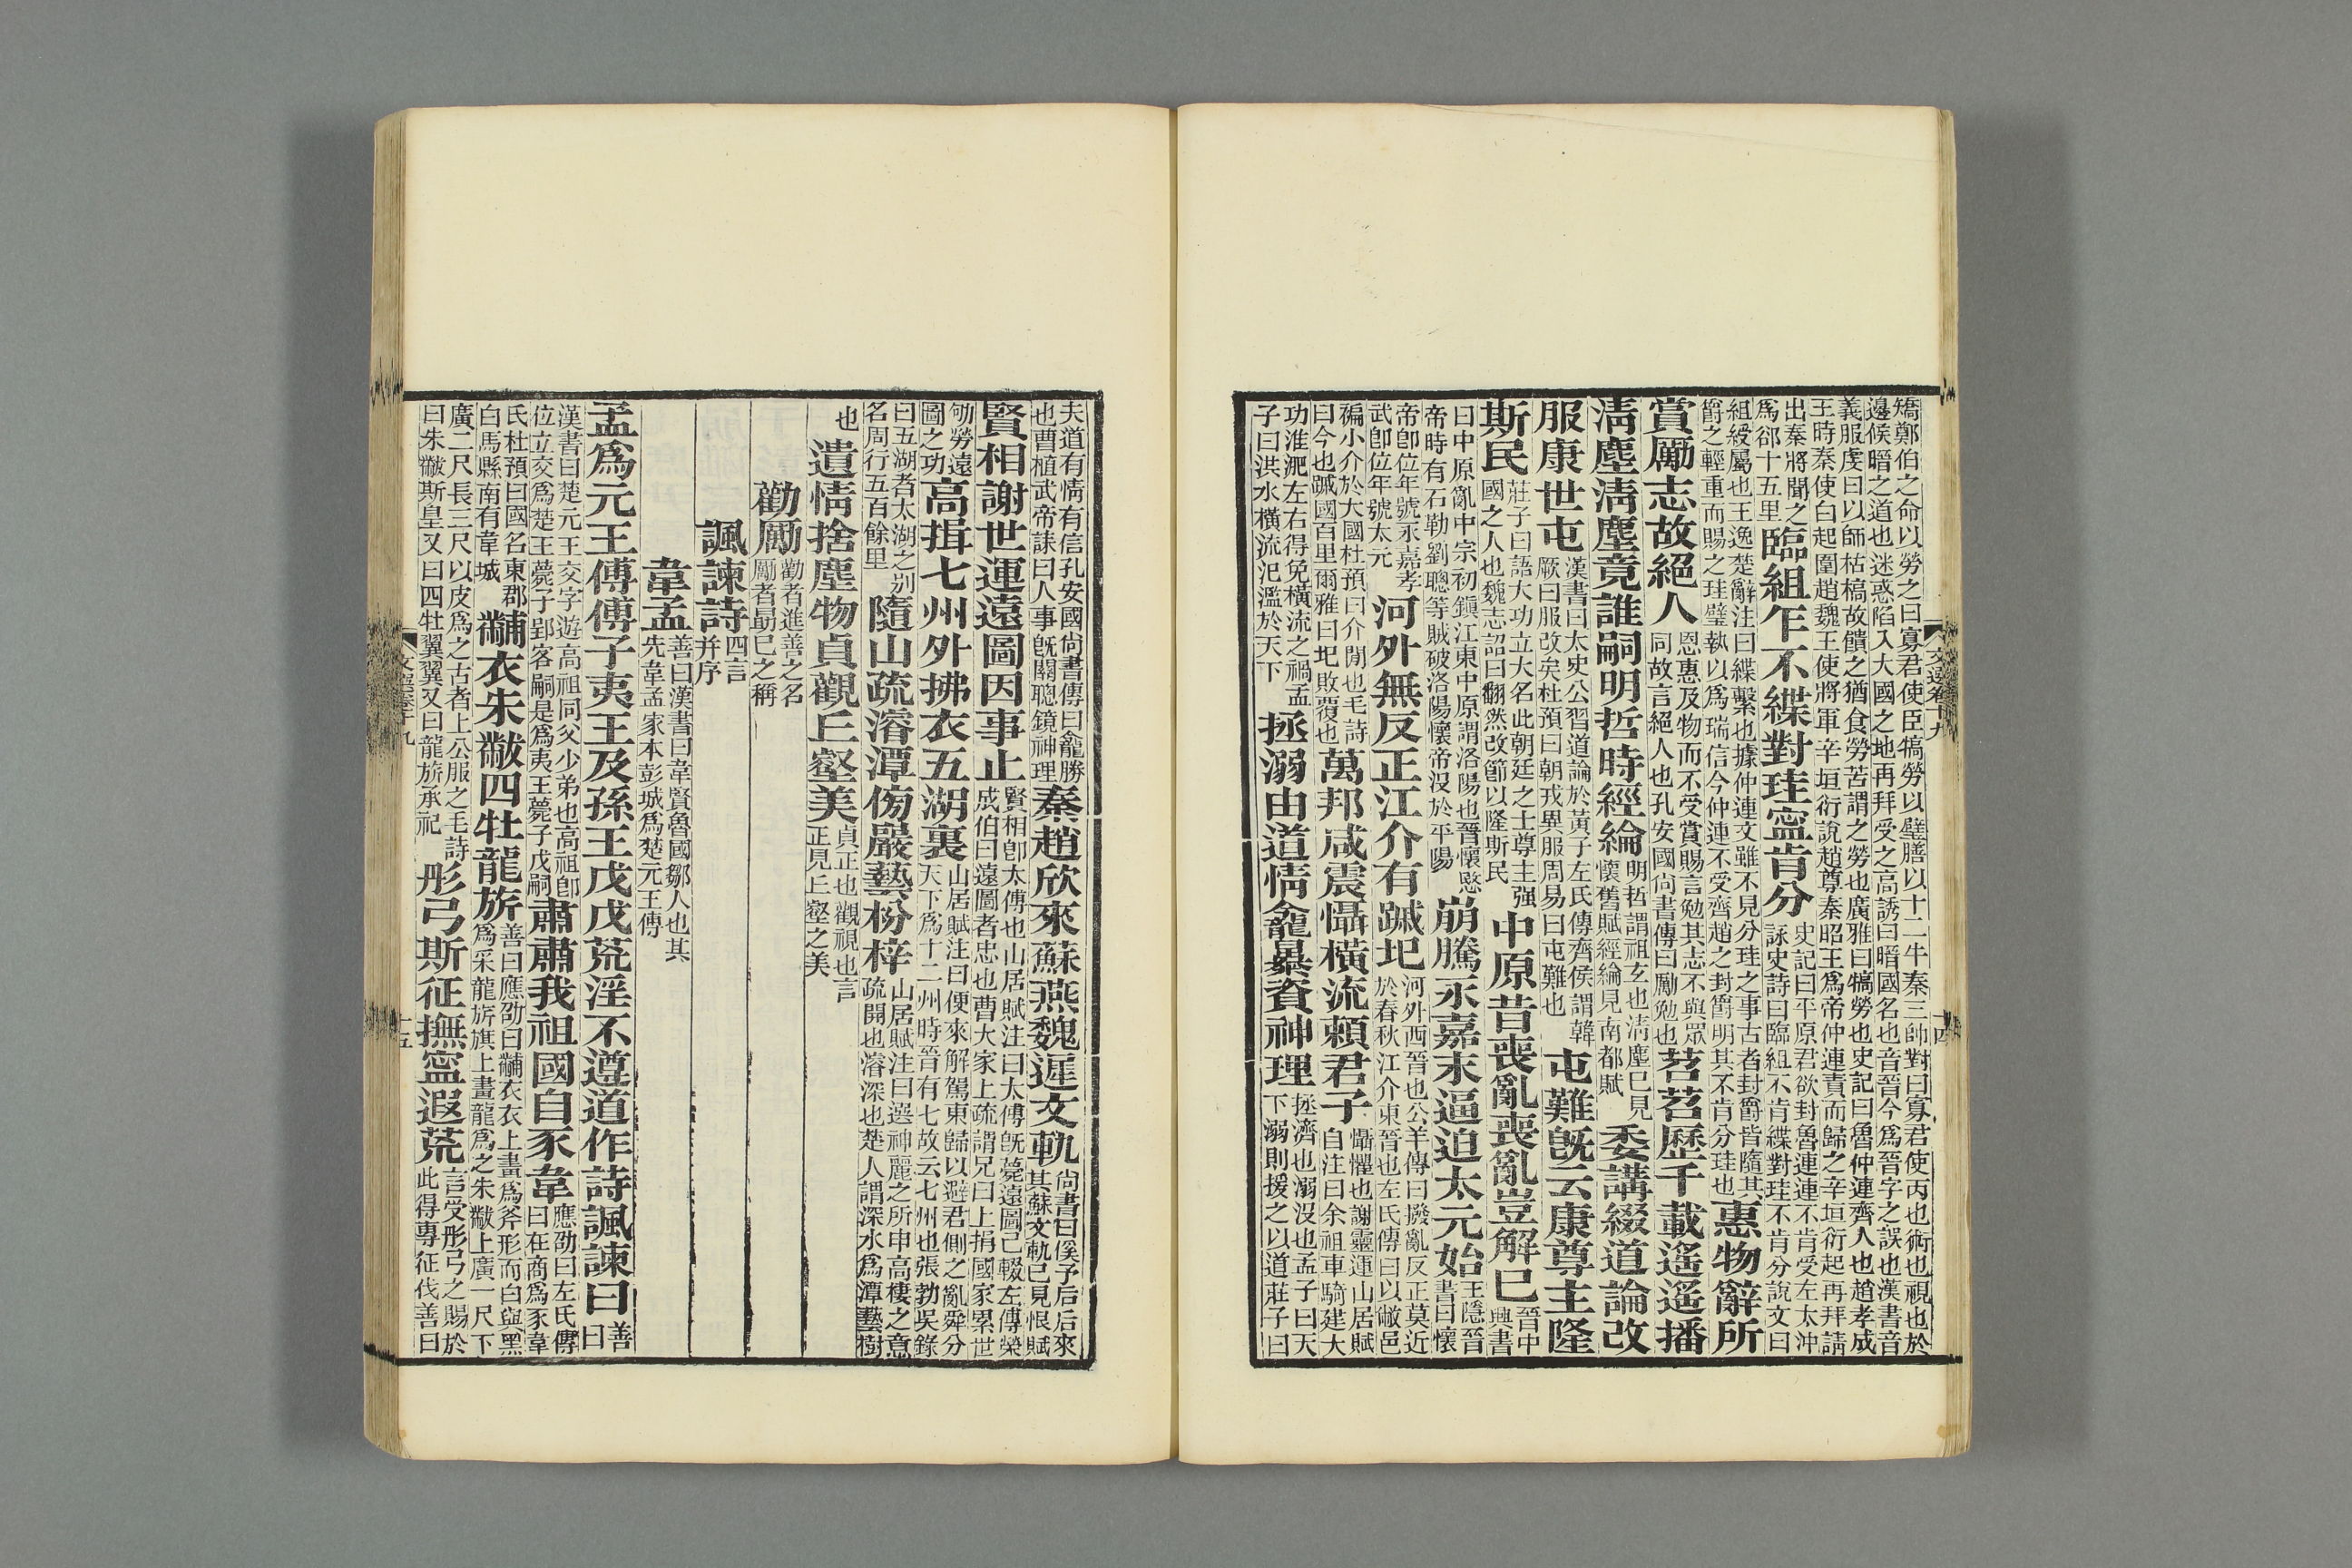 矯鄭伯之命以勞之曰寡君使臣犒勞以璧膳以十二牛秦三帥對曰寡君使丙也術也視也於
邊候晤之道也迷惑陷入大國之地再拜受之高誘曰晤國名也音晉今爲晉字之誤也漢書音
義服虔曰以師枯槁故饋之猶食勞苦謂之勞也廣雅曰犒勞也史記曰魯仲連齊人也趙孝成
王時秦使白起圍趙魏王使將軍辛垣衍說趙尊秦昭王爲帝仲連責而歸之辛垣衍起再拜請
出秦將聞之
爲郤十五里
臨組乍不緤對珪寍肯分
史記曰平原君欲封魯連連不肯受左太沖
詠史詩曰臨組不肯緤對珪不肯分說文曰
組綬屬也王逸楚辭注曰緤繫也據仲連文雖不見分珪之事古者封爵皆隨其
爵之輕重而賜之珪璧執以爲瑞信今仲連不受齊趙之封爵明其不肯分珪也
惠物辭所
賞厲志故絕人
恩惠及物而不受賞賜言勉其志不與眾
同故言絕人也孔安國尚書傳曰厲勉也
苕苕歷千載遙遙播
淸塵淸塵竟誰嗣明哲時經綸
明哲謂祖玄也淸塵巳見
懷舊賦經綸見南都賦
委講綴道論改
服康世屯
漢書曰太史公習道論於黃子左氏傳齊侯謂韓
厥曰服改矣杜預曰朝戎異服周易曰屯難也
屯難旣云康尊主隆
斯民
莊子曰語大功立大名此朝廷之士尊主强
國之人也魏志詔曰翻然改節以隆斯民
中原昔喪亂喪亂豈解巳
晉中
興書
曰中原亂中宗初鎭江東中原謂洛陽也晉懷愍
帝時有石勒劉聰等賊破洛陽懷帝沒於平陽
崩騰永嘉末逼迫太元始
王隱晉
書曰懷
帝卽位年號永嘉孝
武卽位年號太元
河外無反正江介有蹙圮
河外西晉也公羊傳曰撥亂反正莫近
於春秋江介東晉也左氏傳曰以敝邑
褊小介於大國杜預曰介閒也毛詩
曰今也蹙國百里爾雅曰圮敗覆也
萬邦咸震懾橫流賴君子
懾懼也謝靈運山居賦
自注曰余祖車騎建大
功淮淝左右得免橫流之禍孟
子曰洪水橫流氾濫於天下
拯溺由道情龕暴資神理
拯濟也溺沒也孟子曰天
下溺則援之以道莊子曰
文選卷十九
十四
夫道有情有信孔安國尚書傳曰龕勝
也曹植武帝誄曰人事旣關聰鏡神理
秦趙欣來蘇燕魏遲文軌
尚書曰徯予后后來
其蘇文軌巳見恨賦
賢相謝世運遠圖因事止
賢相卽太傅也山居賦注曰太傅旣薨遠圖已輟左傳榮
成伯曰遠圖者忠也曹大家上疏謂兄曰上捐國家累世
劬勞遠
圖之功
高揖七州外拂衣五湖裏
山居賦注曰便來解駕東歸以避君側之亂舜分
天下爲十二州時晉有七故云七州也張勃吳錄
曰五湖者太湖之別
名周行五百餘里
隨山疏濬潭傍巖藝枌梓
山居賦注曰選神麗之所申高棲之意
疏開也濬深也楚人謂深水爲潭藝樹
也
遺情捨塵物貞觀丘壑美
貞正也觀視也言
正見丘壑之美
勸厲
勸者進善之名
厲者勗已之稱
諷諫詩
四言
并序
韋孟
善曰漢書曰韋賢魯國鄒人也其
先韋孟家本彭城爲楚元王傅
孟爲元王傅傅子夷王及孫王戊戊荒淫不遵道作詩諷諫曰
善
曰
漢書曰楚元王交字游高祖同父少弟也高祖卽
位立交爲楚王薨子郢客嗣是爲夷王薨子戊嗣
肅肅我祖國自豕韋
應劭曰左氏傳
曰在商爲豕韋
氏杜預曰國名東郡
白馬縣南有韋城
黼衣朱黻四牡龍旂
善曰應劭曰黼衣衣上畫爲斧形而白與黑
爲采龍旂旗上畫龍爲之朱黻上廣一尺下
廣二尺長三尺以皮爲之古者上公服之毛詩
曰朱黻斯皇又曰四牡翼翼又曰龍旂承祀
彤弓斯征撫寍遐荒
言受彤弓之賜於
此得專征伐善曰
文選卷十九
十五